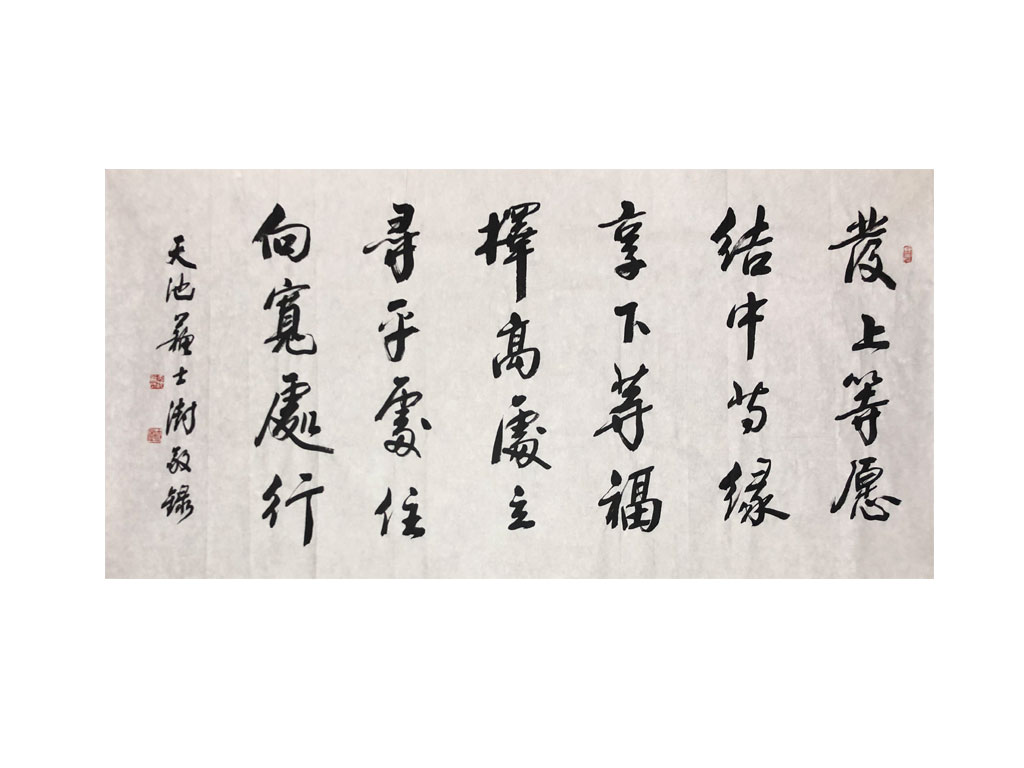 發上等愿
結中等缘
享下等福
擇高處立
尋平處住
向寬處行
天池蘇士澍敬録